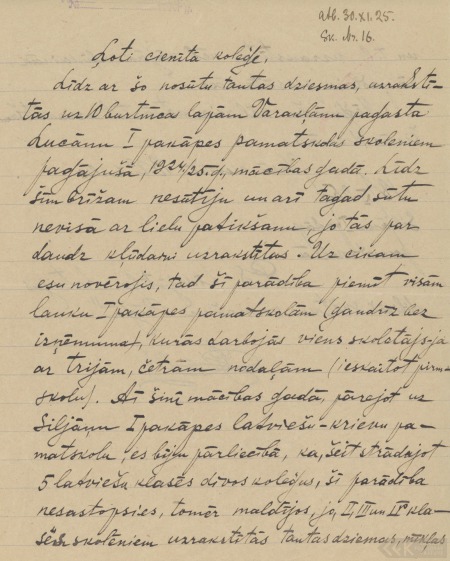 atb. 30.XI.25.
Sk. Nr. 16.
Ļoti cienītā kolēģe,
Līdz ar šo nosūtu tautas dziesmas, uzrakstī-
tās uz 10 burtnīcu lapām Varakļānu pagasta
Lucānu I pakāpes pamatskolas skolēniem
pagājušā, 1924/25. g., mācības gadā. Līdz
šim brīžam nesūtīju un arī tagad sūtu
nevisā ar lielu patikšanu, jo tās par
daudz kļūdaini uzrakstītas. Uz cikam
esu novērojis, tad šī parādība piemīt visām
lauku I pakāpes pamatskolām (gandrīz bez
izņēmuma), kurās darbojās viens skolotājs-ja
ar trijām, četrām nodaļām (ieskaitot pirm-
skolu). Arī šinī mācības gadā, pārejot uz
Siljāņu I pakāpes latviešu-krievu pa-
matskolu, es biju pārliecībā, ka, šeit strādājot
5 latviešu klasēs divos kolēģus, šī parādība
nesastopsies, tomēr maldījos, jo, I, III un IV kla-
šu skolēniem uzrakstītās tautas dziesmas,